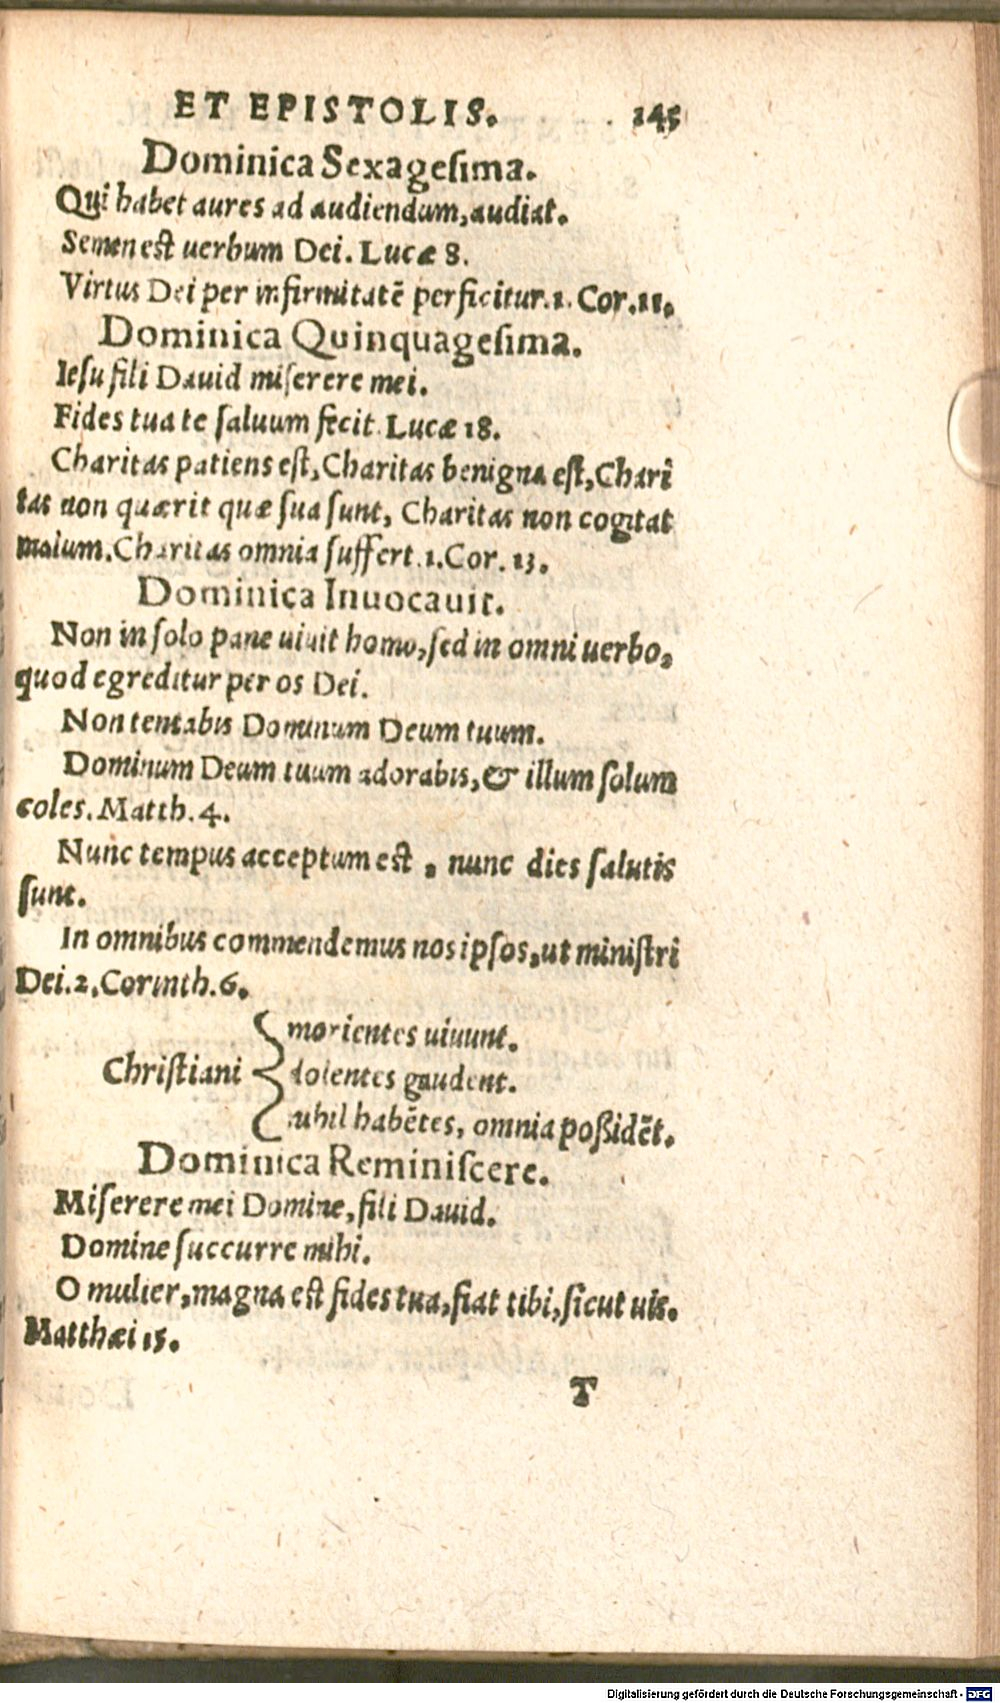 ET EPISTOLIS. 145
Dominica Sexagesima.
Qui habet aures ad audiendum, audiat.
Semen est uerbum Dei. Lucæ 8.
Virtus Dei per infirmitatē perficitur. 1. Cor. 11.
Dominica Quinquagesima.
Iesu fili Dauid miserere mei.
Fides tua te saluum fecit. Lucæ 18.
Charitas patiens est, Charitas benigna est, Chari
tas non quærit quæ sua sunt, Charitas non cogitat
malum. Charitas omnia suffert. 1. Cor. 13.
Dominica Inuocauit.
Non in solo pane uiuit homo, sed in omni uerbo,
quod egreditur per os Dei.
Non tentabis Dominum Deum tuum.
Dominum Deum tuum adorabis, & illum solum
coles. Matth. 4.
Nunc tempus acceptum est, nunc dies salutis
sunt.
In omnibus commendemus nos ipsos, ut ministri
Dei. 2. Corinth. 6.
morientes uiuunt.
Christiani dolentes gaudent.
nihil habētes, omnia poßidēt.
Dominica Reminiscere.
Miserere mei Domine, fili Dauid.
Domine succurre mihi.
O mulier, magna est fides tua, fiat tibi, sicut uis.
Matthæi 15.
T
Digitalisierung gefördert durch die Deutsche Forschungsgemeinschaft - DFG